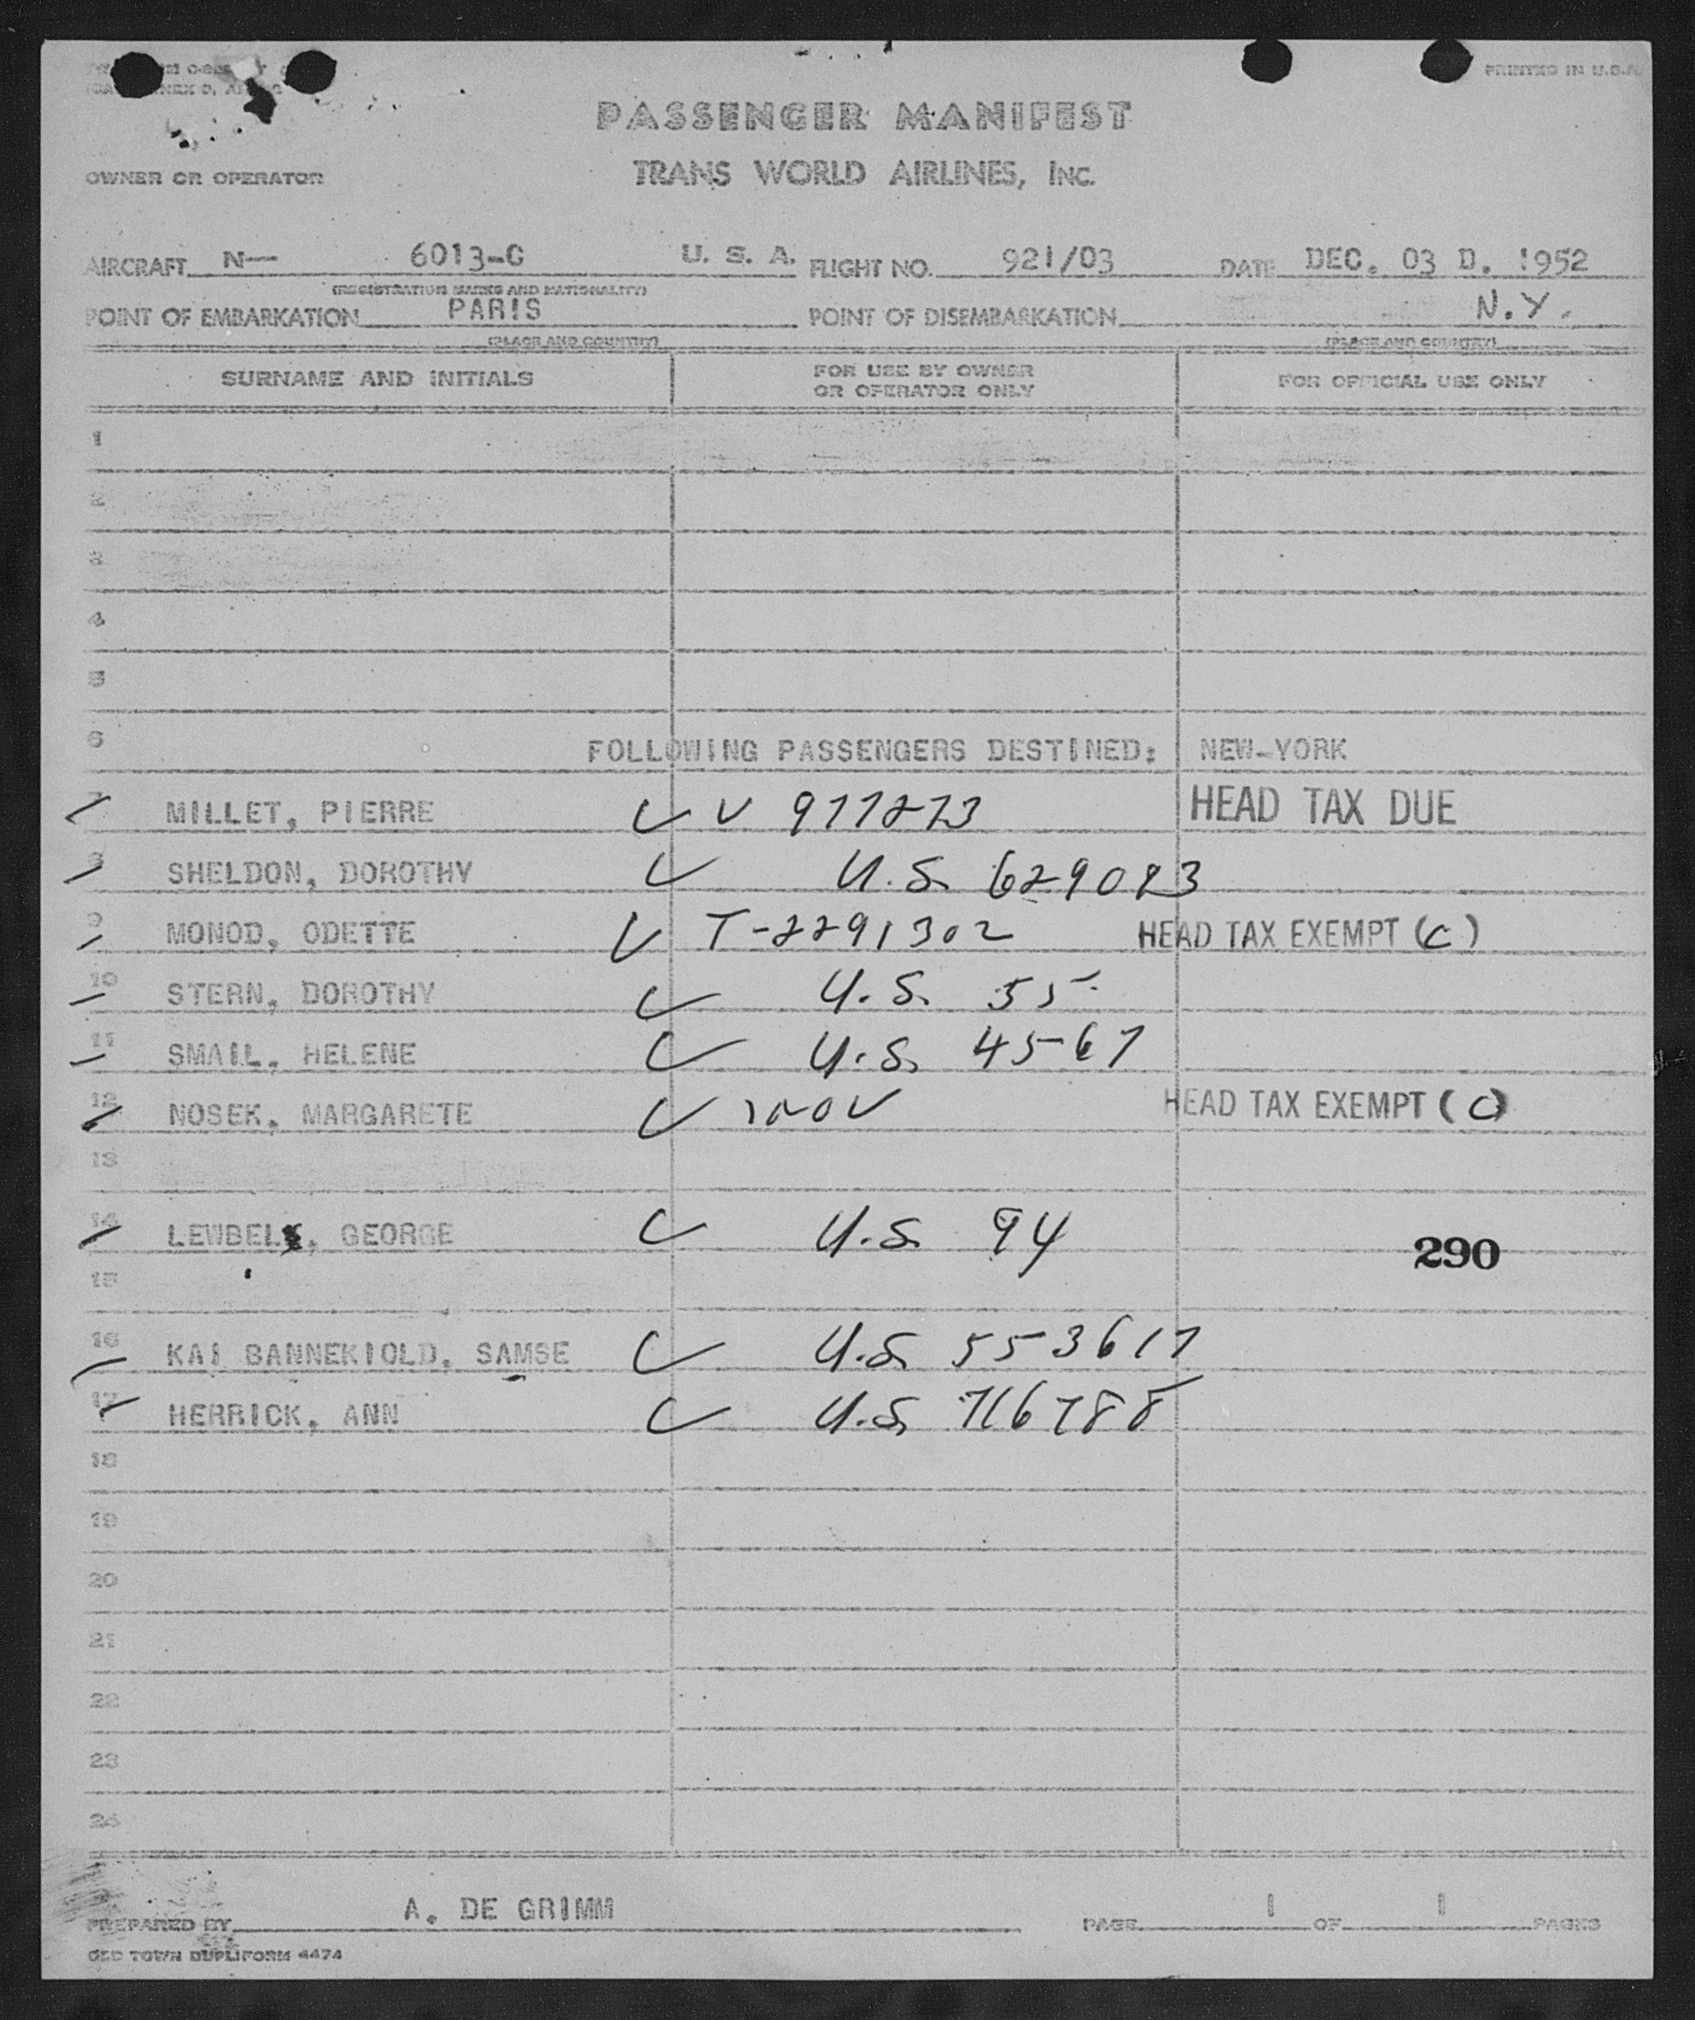 PRINTED IN U.S.A.
PASSENGER MANIFEST
OWNER OR OPERATOR TRANS WORLD AIRLINES, INC.
AIRCRAFT N— 6013-C U. S. A. FLIGHT NO. 921/03 DATE DEC. 03 D. 1952
(REGISTRATION MARKS AND NATIONALITY)
POINT OF EMBARKATION PARIS POINT OF DISEMBARKATION N.Y.
(PLACE AND COUNTRY) (PLACE AND COUNTRY)
SURNAME AND INITIALS FOR USE BY OWNER OR OPERATOR ONLY FOR OFFICIAL USE ONLY
1
2
3
4
5
6 FOLLOWING PASSENGERS DESTINED: NEW-YORK
7 MILLET, PIERRE V 977273 HEAD TAX DUE
8 SHELDON, DOROTHY U.S. 629083
9 MONOD, ODETTE T-2291302 HEAD TAX EXEMPT (C)
10 STERN, DOROTHY U.S. 55
11 SMAIL, HELENE U.S. 4567
12 NOSEK, MARGARETE HEAD TAX EXEMPT (C)
13
14 LEWBEL, GEORGE U.S. 94
290
15
16 KAI BANNEKIOLD, SAMSE U.S. 553617
17 HERRICK, ANN U.S. 716788
18
19
20
21
22
23
24
PREPARED BY A. DE GRIMM PAGE 1 OF 1 PAGES
OLD TOWN DUPLIFORM 4474